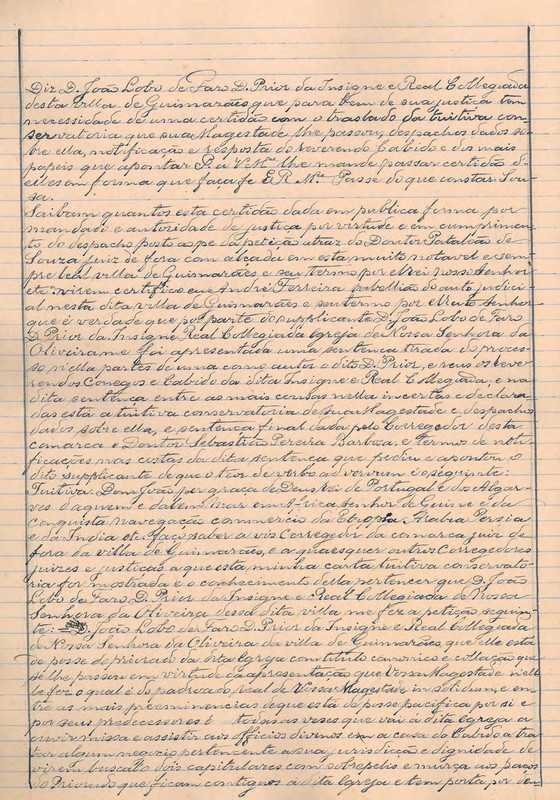 Diz D. João Lobo de Faro D. Prior da Insigne e Real Collegiada
desta villa de Guimarães que para bem de sua justiça tem
necessidade de uma certidão com o traslado da tuitiva con-
servatoria que sua Magestade lhe passou, despachos dados so-
bre ella, notificação e resposta do reverendo Cabido e dos mais
papeis que apontar P. a V. M.ce lhe mande passar certidão d'-
elles em forma que faça fé E. R. M.ce Passe do que constar Sou-
sa.
Saibam quantos esta certidão dada em publica forma por
mandado e autoridade de justiça por virtude e em cumprimen-
to do despacho posto ao pé da petição atraz do Doutor Patalião de
Souza juiz de fora com alçada em esta muito notavel e sem-
pre leal villa de Guimarães e seu termo por El-rei Nosso Senhor
etc. virem certifico eu André Ferreira tabellião do auto judici-
al nesta dita villa de Guimarães e seu termo por el dito Senhor
que é verdade que por parte do supplicante D. João Lobo de Faro
D. Prior da Insigne Real Collegiada Igreja de Nossa Senhora da
Oliveira me foi apresentada uma sentença tirada do proces-
so n'ella partes de uma como autor o dito D. Prior, e reus os reve-
rendos Conegos e Cabido da dita Insigne e Real Collegiada, e na
dita sentença entre as mais cousas nella insertas e declara-
das está a tuitiva conservatoria de sua Magestade e despachos
dados sobre ella, e sentença final dada pelo Corregedor desta
comarca o Doutor Sebastião Pereira Barbosa, e termos de noti-
ficações nas costas da dita sentença que pediu e apontou o
dito supplicante de que o teor de verbo ad verbum é o seguinte:
Tuitiva. Dom João por graça de Deus Rei de Portugal e dos Algar-
ves daquem e dalém mar em Africa Senhor de Guiné e da
conquista navegação commercio da Etiopia Arabia Persia
e da India etc. Faço saber a vós Corregedor da comarca juiz de
fora da villa de Guimarães, e a quaesquer outros Corregedores
juizes e justiças a que esta minha carta tuitiva conservato-
ria for mostrada e o conhecimento della pertencer que D. João
Lobo de Faro D. Prior da Insigne e Real Collegiada de Nossa
Senhora da Oliveira dessa dita villa me fez a petição seguin-
te: D. João Lobo de Faro D. Prior da Insigne e Real Collegiada
de Nossa Senhora da Oliveira da villa de Guimarães que elle está
de posse do priorado da dita Igreja constituto canonico e collação que
se lhe passou em virtude da apresentação que Vossa Magestade n'elle
fez o qual é do padroado real de Vossa Magestade in solidum, e en-
tre as mais preeminencias de que está de posse pacifica por si e
por seus predecessores é todas as vezes que vai á dita Igreja a
ouvir missa e assistir aos officios divinos com a casa do Cabido a tra-
tar algum negocio pertencente a sua jurisdicção e dignidade de
virem buscal-o dois capitulares com sobrepelis e murça aos paços
do Priorado que ficam contiguos á dita Igreja e tem porta por den-